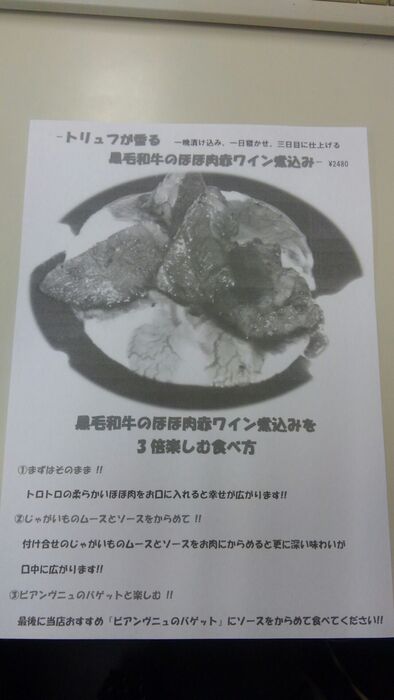 -トリュフが香る 一晩漬け込み、一日寝かせ、三日目に仕上げる
黒毛和牛のほほ肉赤ワイン煮込み- ¥2480
黒毛和牛のほほ肉赤ワイン煮込みを
3倍楽しむ食べ方
①まずはそのまま!!
トロトロの柔らかいほほ肉をお口に入れると幸せが広がります!!
②じゃがいものムースとソースをからめて!!
付け合せのじゃがいものムースとソースをお肉にからめると更に深い味わいが
口中に広がります!!
③ビアンヴニュのバゲットと楽しむ!!
最後に当店おすすめ「ビアンヴニュのバゲット」にソースをからめて食べてください!!